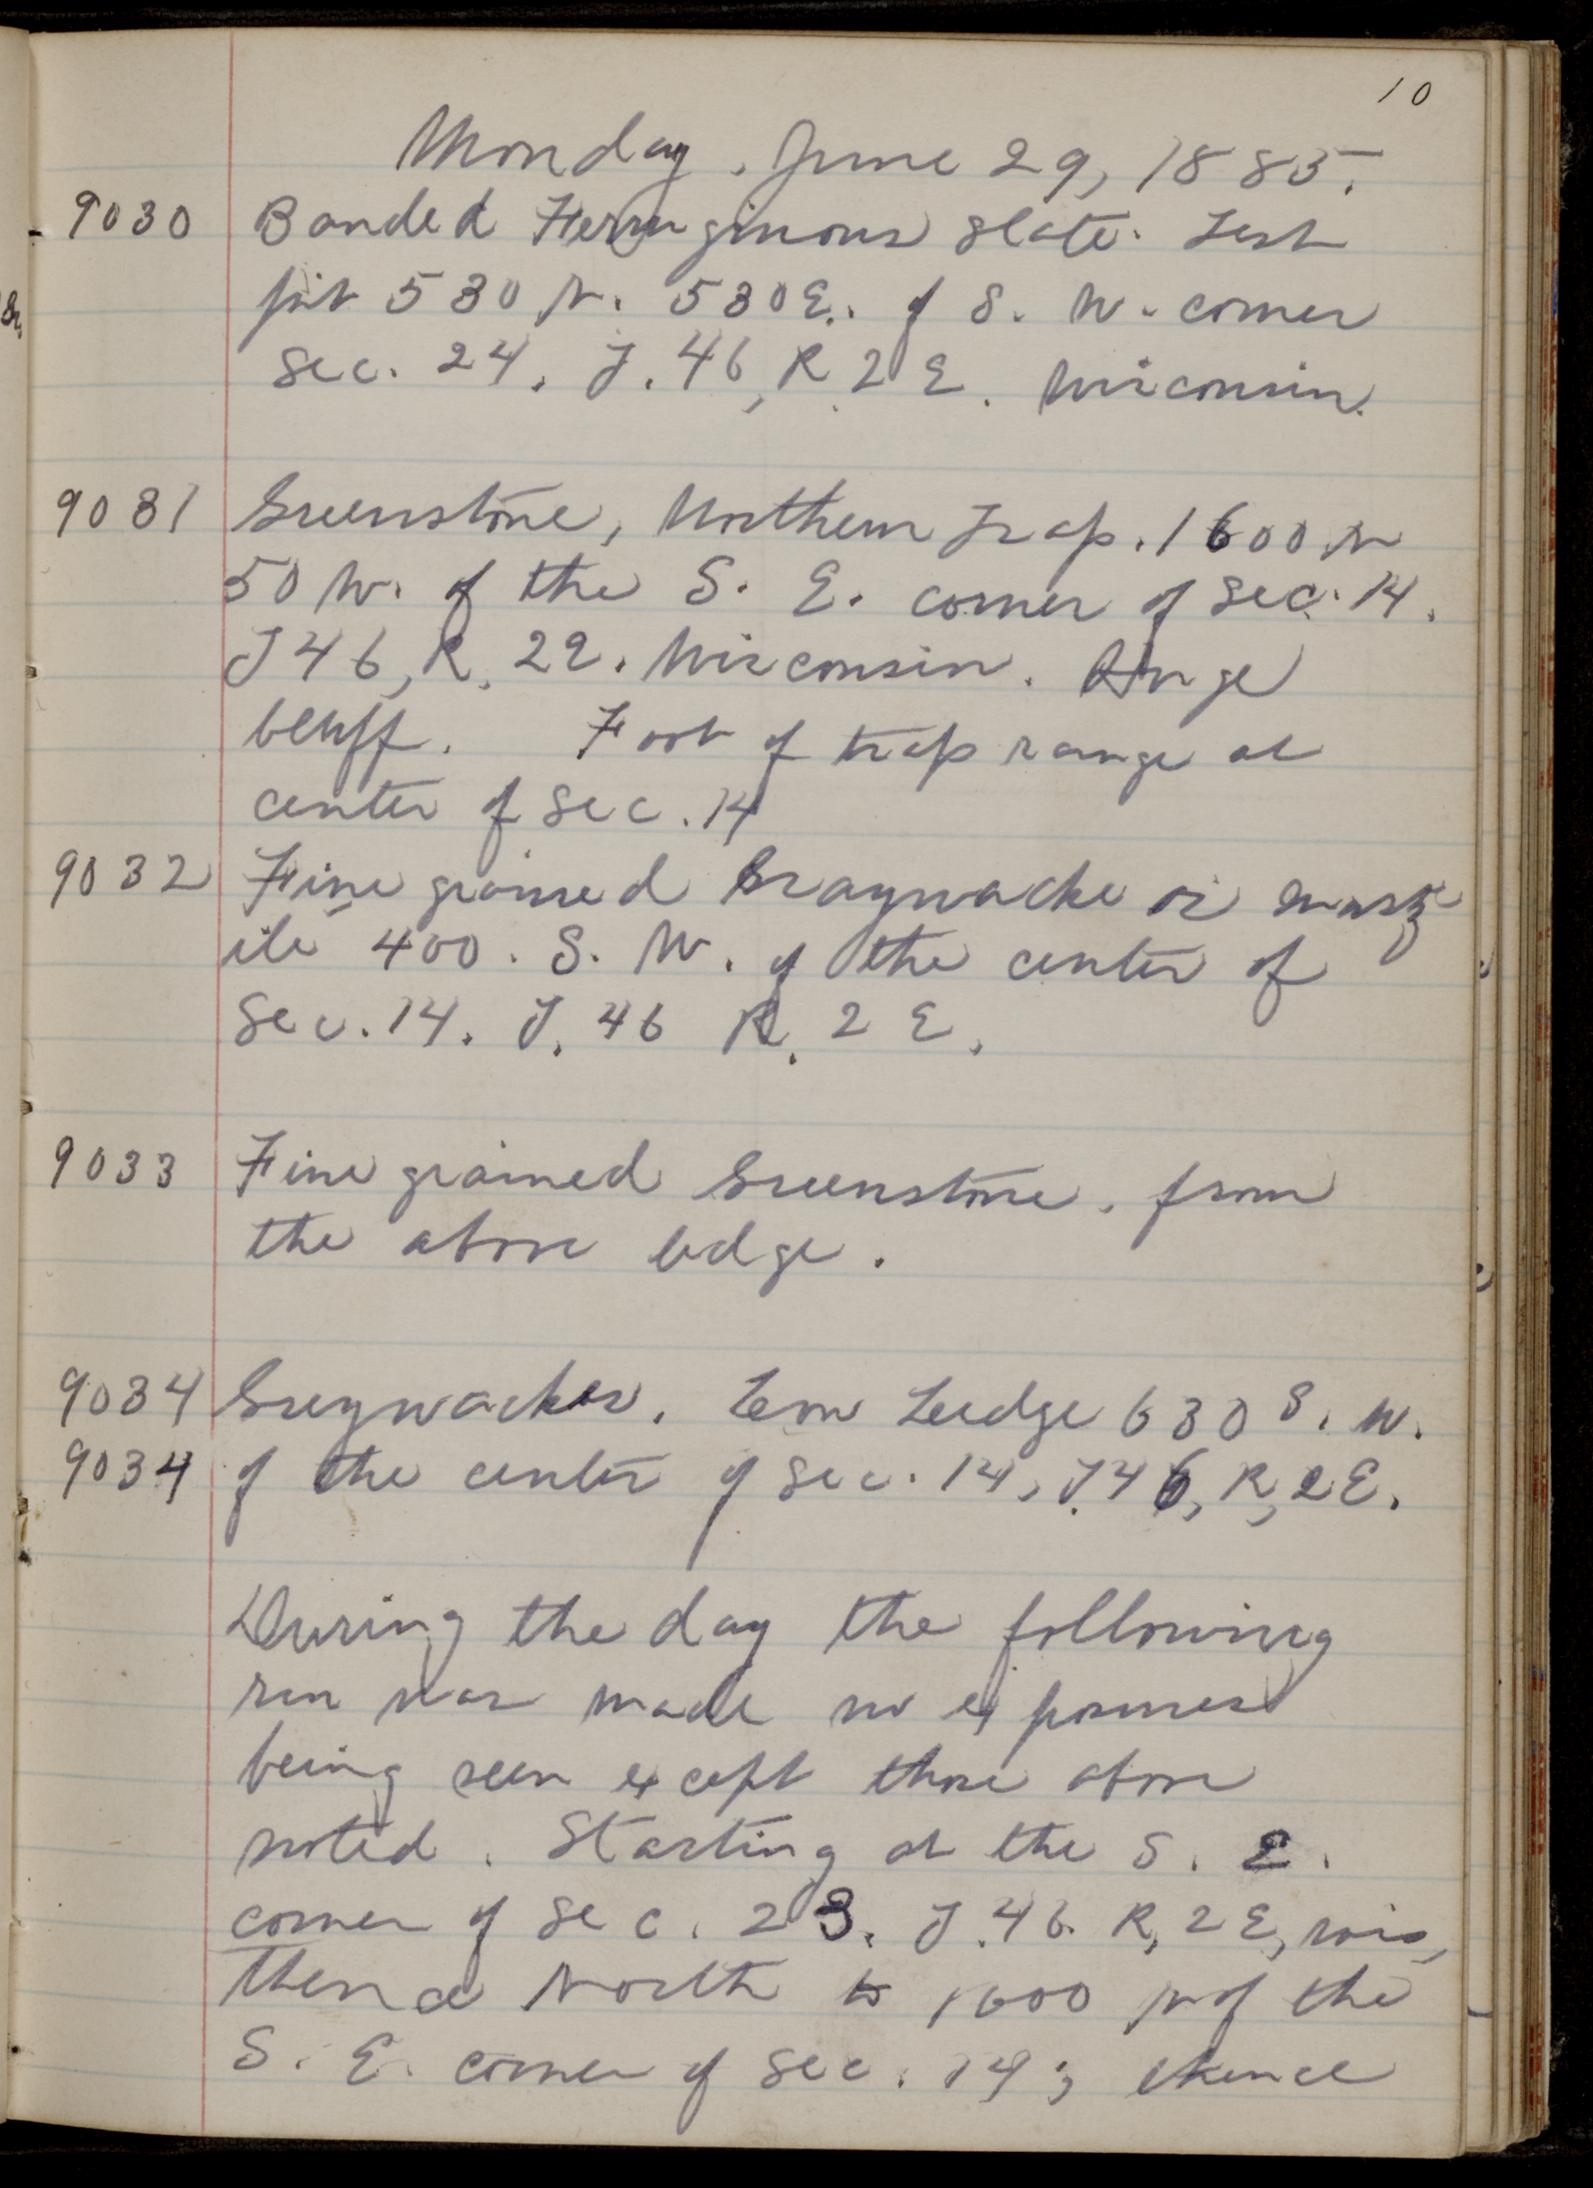 10
Monday, June 29, 1885.
9030 Banded Ferruginous Slate. Test
pit 530 N. 530 E. of S. W. corner
Sec. 24. T. 46, R. 2 E. Wisconsin.
9031 Greenstone, Northern Trap. 1600 N
50 W. of the S. E. corner of Sec. 14.
T 46, R. 2 E. Wisconsin. Huge
bluff. Foot of trap range at
center of Sec. 14
9032 Fine grained Graywacke or Quartz
ite 400. S. W. of the center of
Sec. 14. T. 46 R. 2 E.
9033 Fine grained Greenstone. from
the above ledge.
9034 Greywackes. Low Ledge 630 S. W.
9034 of the center of Sec. 14, T. 46, R, 2 E.
During the day the following
run was made no exposures
being seen except those above
noted. Starting at the S. E.
corner of Sec. 23. T. 46. R, 2 E, Wis,
Thence North to 1600 N of the
S. E. corner of Sec. 14; thence